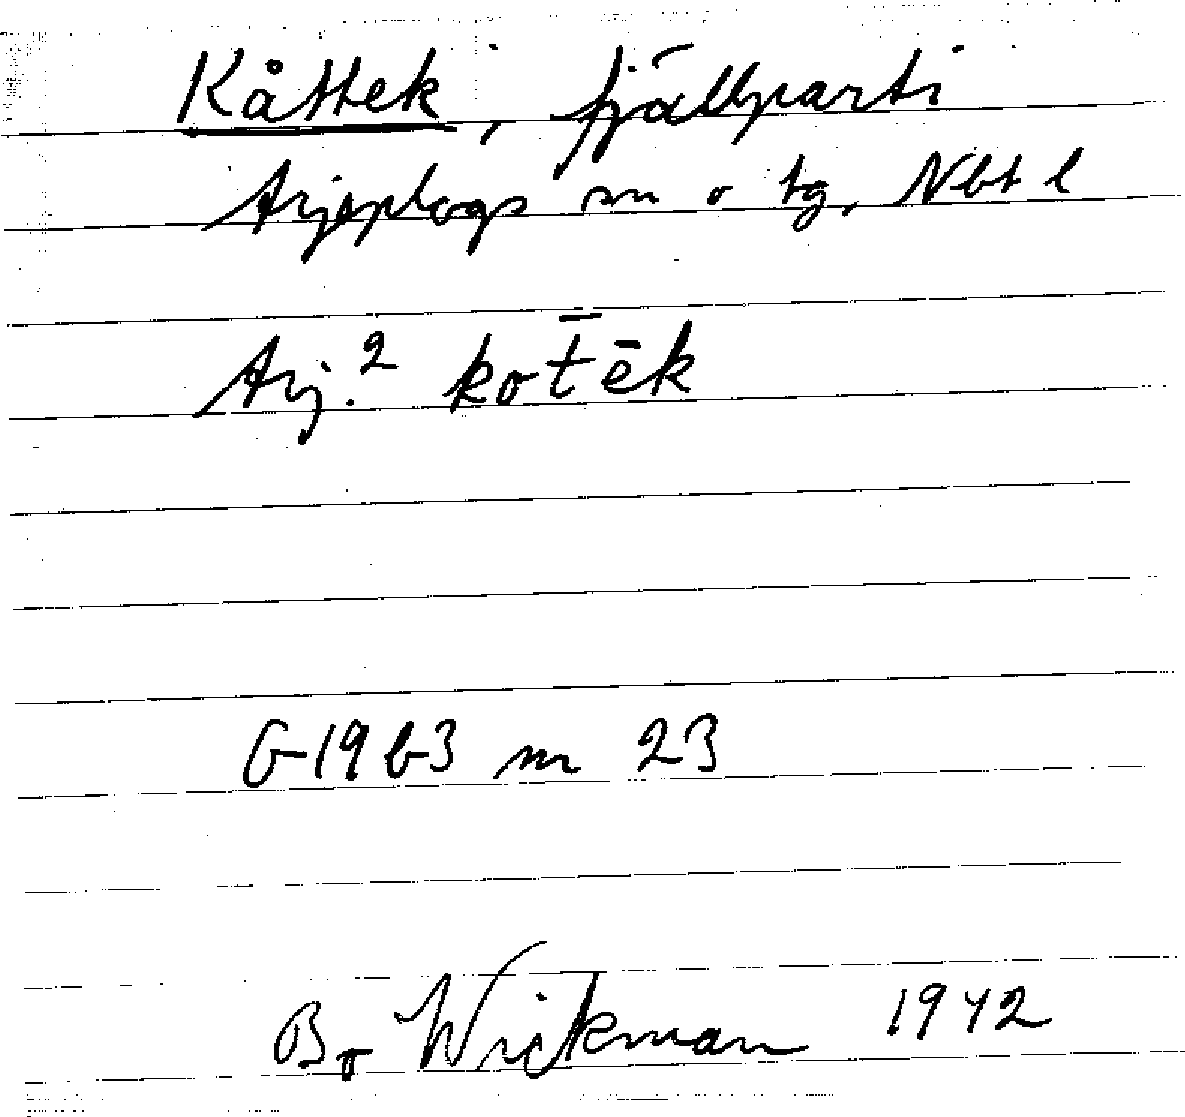 Kåttek, fjällparti
Arjeplogs sn o tg, Nbt l
Arj.² kot̄ēk
G19b3 nr 23
Bo Wickman 1942